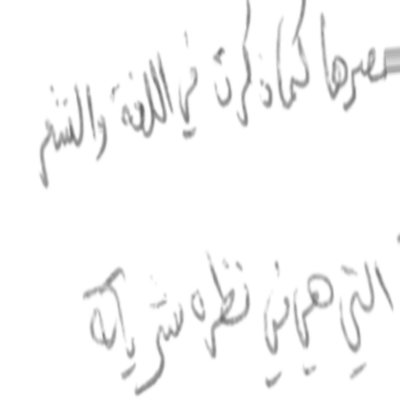 عصرها كما ذكرت في اللغة والشعر
التي هي في نظره شريانه